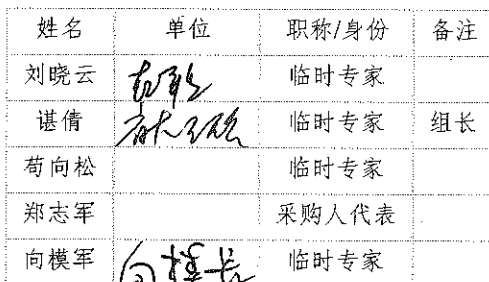 姓名 单位 职称/身份 备注
刘晓云 临时专家
谌倩 临时专家 组长
苟向松 临时专家
郑志军 采购人代表
向模军 临时专家